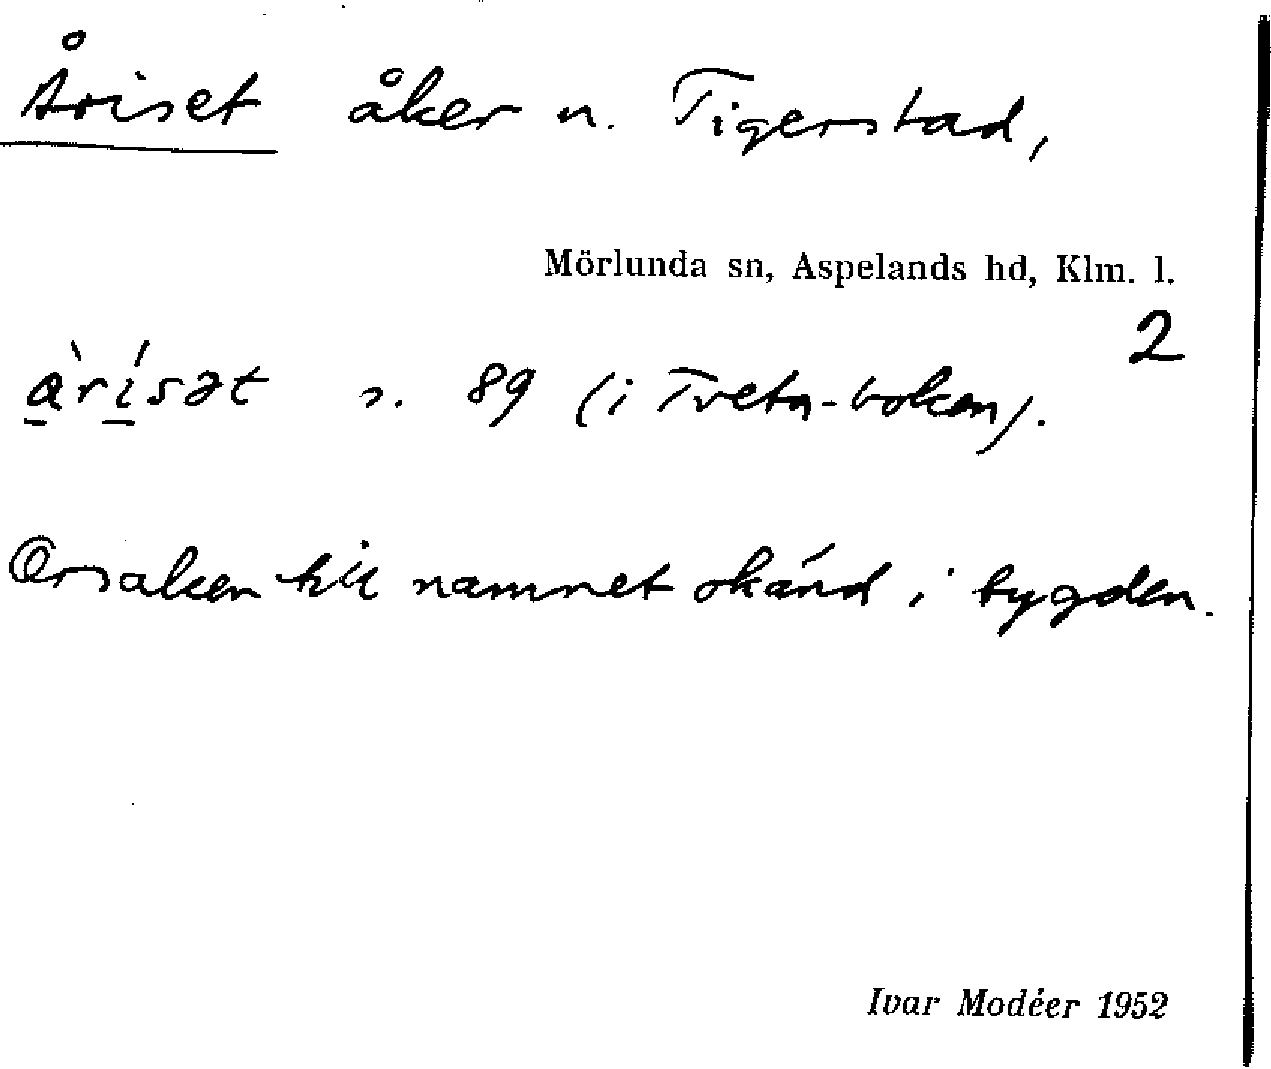 Åriset åker n. Tigerstad,
Mörlunda sn, Aspelands hd, Klm. l.
2
à̱rí̱sət s. 89 (i Tveta-boken).
Orsaken till namnet okänd i bygden.
Ivar Modéer 1952